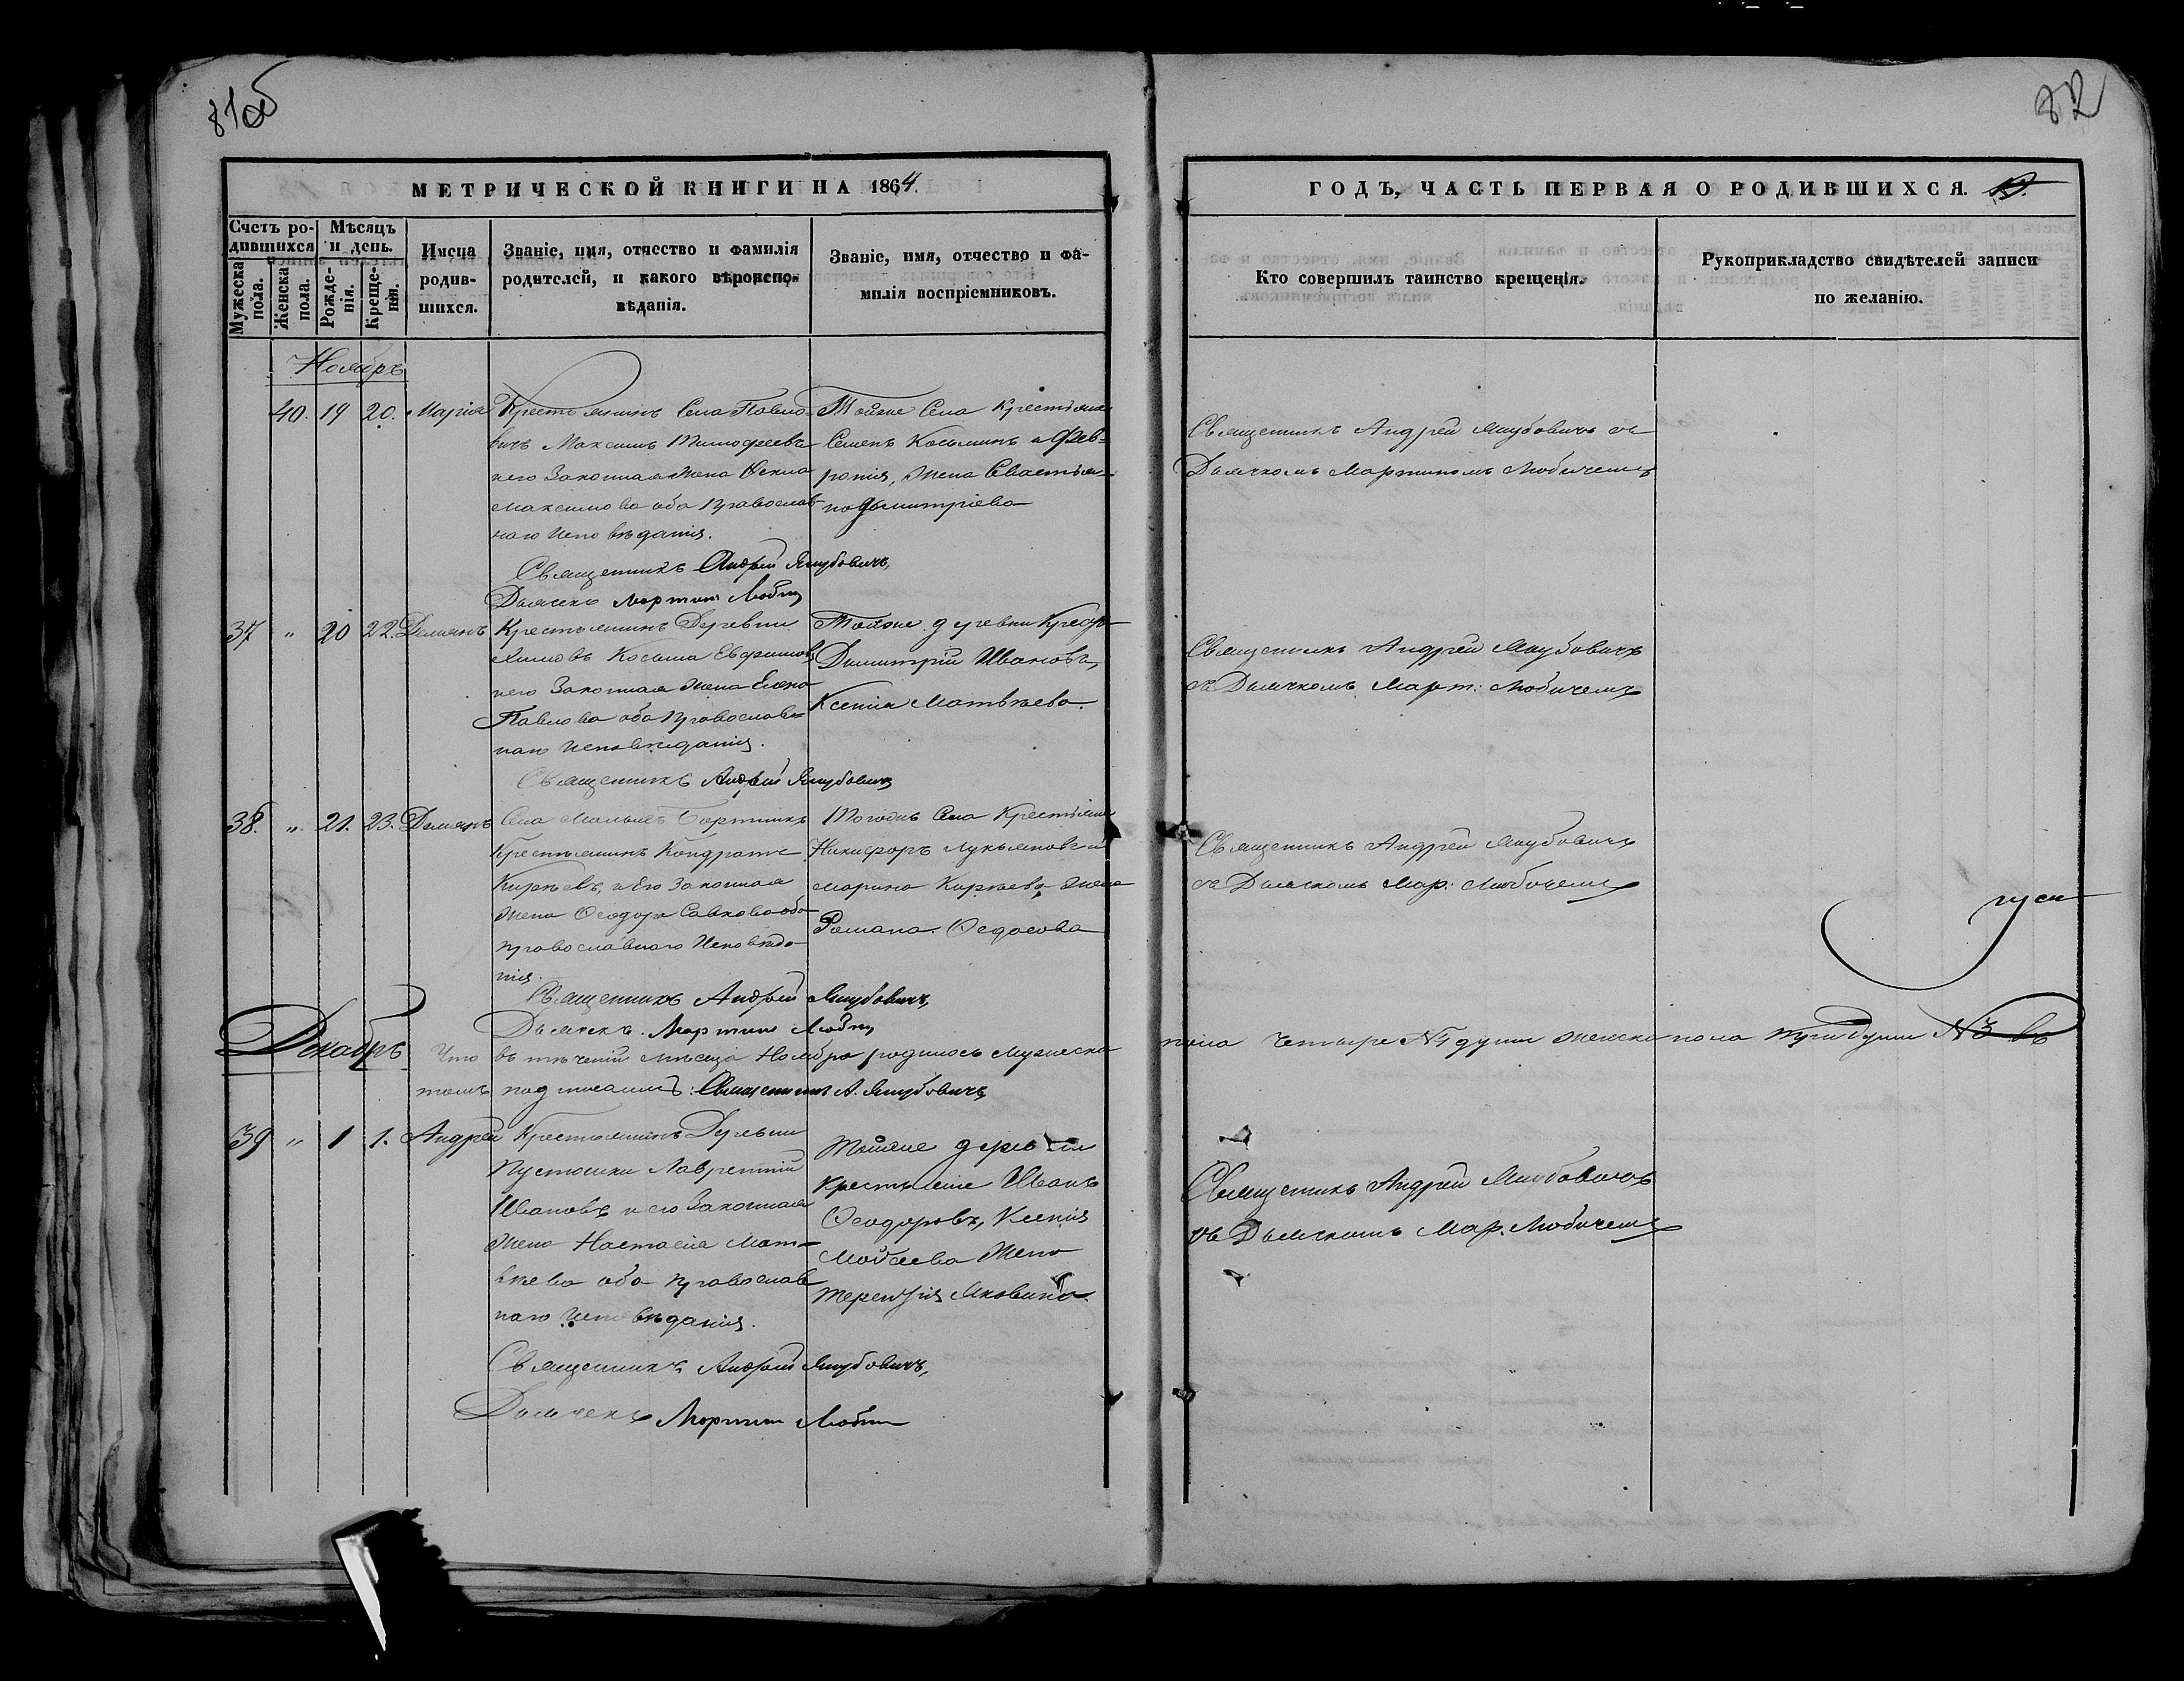 81об
82
МЕТРИЧЕСКОЙ КНИГИ НА 1864.
Счетъ родившихся
Мѣсяцъ и день.
Мужеска пола.
Женска пола.
Рожденія.
Крещенія.
Имена родившихся.
Званіе, имя, отчество и фамилія
родителей, и какого вѣроиспо-
вѣданія.
Званіе, имя, отчество и фа-
милія воспріемниковъ.
Ноябрь
40. 19 20. Марія
Крестьянинъ Села Павло
вичъ Максимъ Тимофеевъ
и его Законная Жена Текла
Максимова оба Православ
наго Исповѣданія.
Священникъ Андрей Якубовичъ,
Дьячекъ Мартинъ Любич
Тойже Села Крестьяне
Семенъ Косьминъ и Фев=
ронія, Жена Севастья-
на Дымитріева
37 " 20 22. Демьянъ
Крестьянинъ Деревни
Косьма Евфимовъ
и его Законная Жена Елена
Павлова оба Православ=
наго Исповѣданія.
Священникъ Андрей Якубовичъ
Тойже деревни Крест
Димитрій Ивановъ,
Ксенія Матвѣева.
38. " 21. 23. Демьянъ
Села Малыхъ Бортникъ
Крестьянинъ Кондратъ
Кирѣевъ, и Его Законная
Жена Феодора Савкова оба
православнаго Исповѣда-
нія.
Священникъ Андрей Якубовичъ,
Дьячекъ Мартинъ Любич
Тогожь Села Крестьяне
Никифоръ Лукьяновъ и
Марина Кирѣева Жена
Романа Федосова
Декабрь
Что въ теченіи мѣсяца Ноября родилось Мужеска
томъ подписались: Священникъ А. Якубовичъ
39 " 1 1. Андрей
Крестьянинъ Деревни
Пустошки Лаврентій
Ивановъ и его Законная
Жена Настасія Мат=
вѣева оба православ
наго Исповѣданія.
Священникъ Андрей Якубовичъ,
Дьячекъ Мартинъ Любич
Тойже деревни
Крестьяне Иванъ
Феодоровъ, Ксенія
Жена
Терентія Яковина.
ГОДЪ, ЧАСТЬ ПЕРВАЯ О РОДИВШИХСЯ.
Кто совершилъ таинство крещенія.
Рукоприкладство свидѣтелей записи
по желанію.
Священникъ Андрей Якубовичъ съ
Дьячкомъ Мартиномъ Любичемъ
Священникъ Андрей Якубовичъ
съ Дьячкомъ Март: Любичемъ
Священникъ Андрей Якубовичъ
съ Дьячкомъ Мар: Любичемъ
пола четыре №4 души женска пола три души №3 въ
Священникъ Андрей Якубовичъ
съ Дьячкомъ Мар. Любичемъ